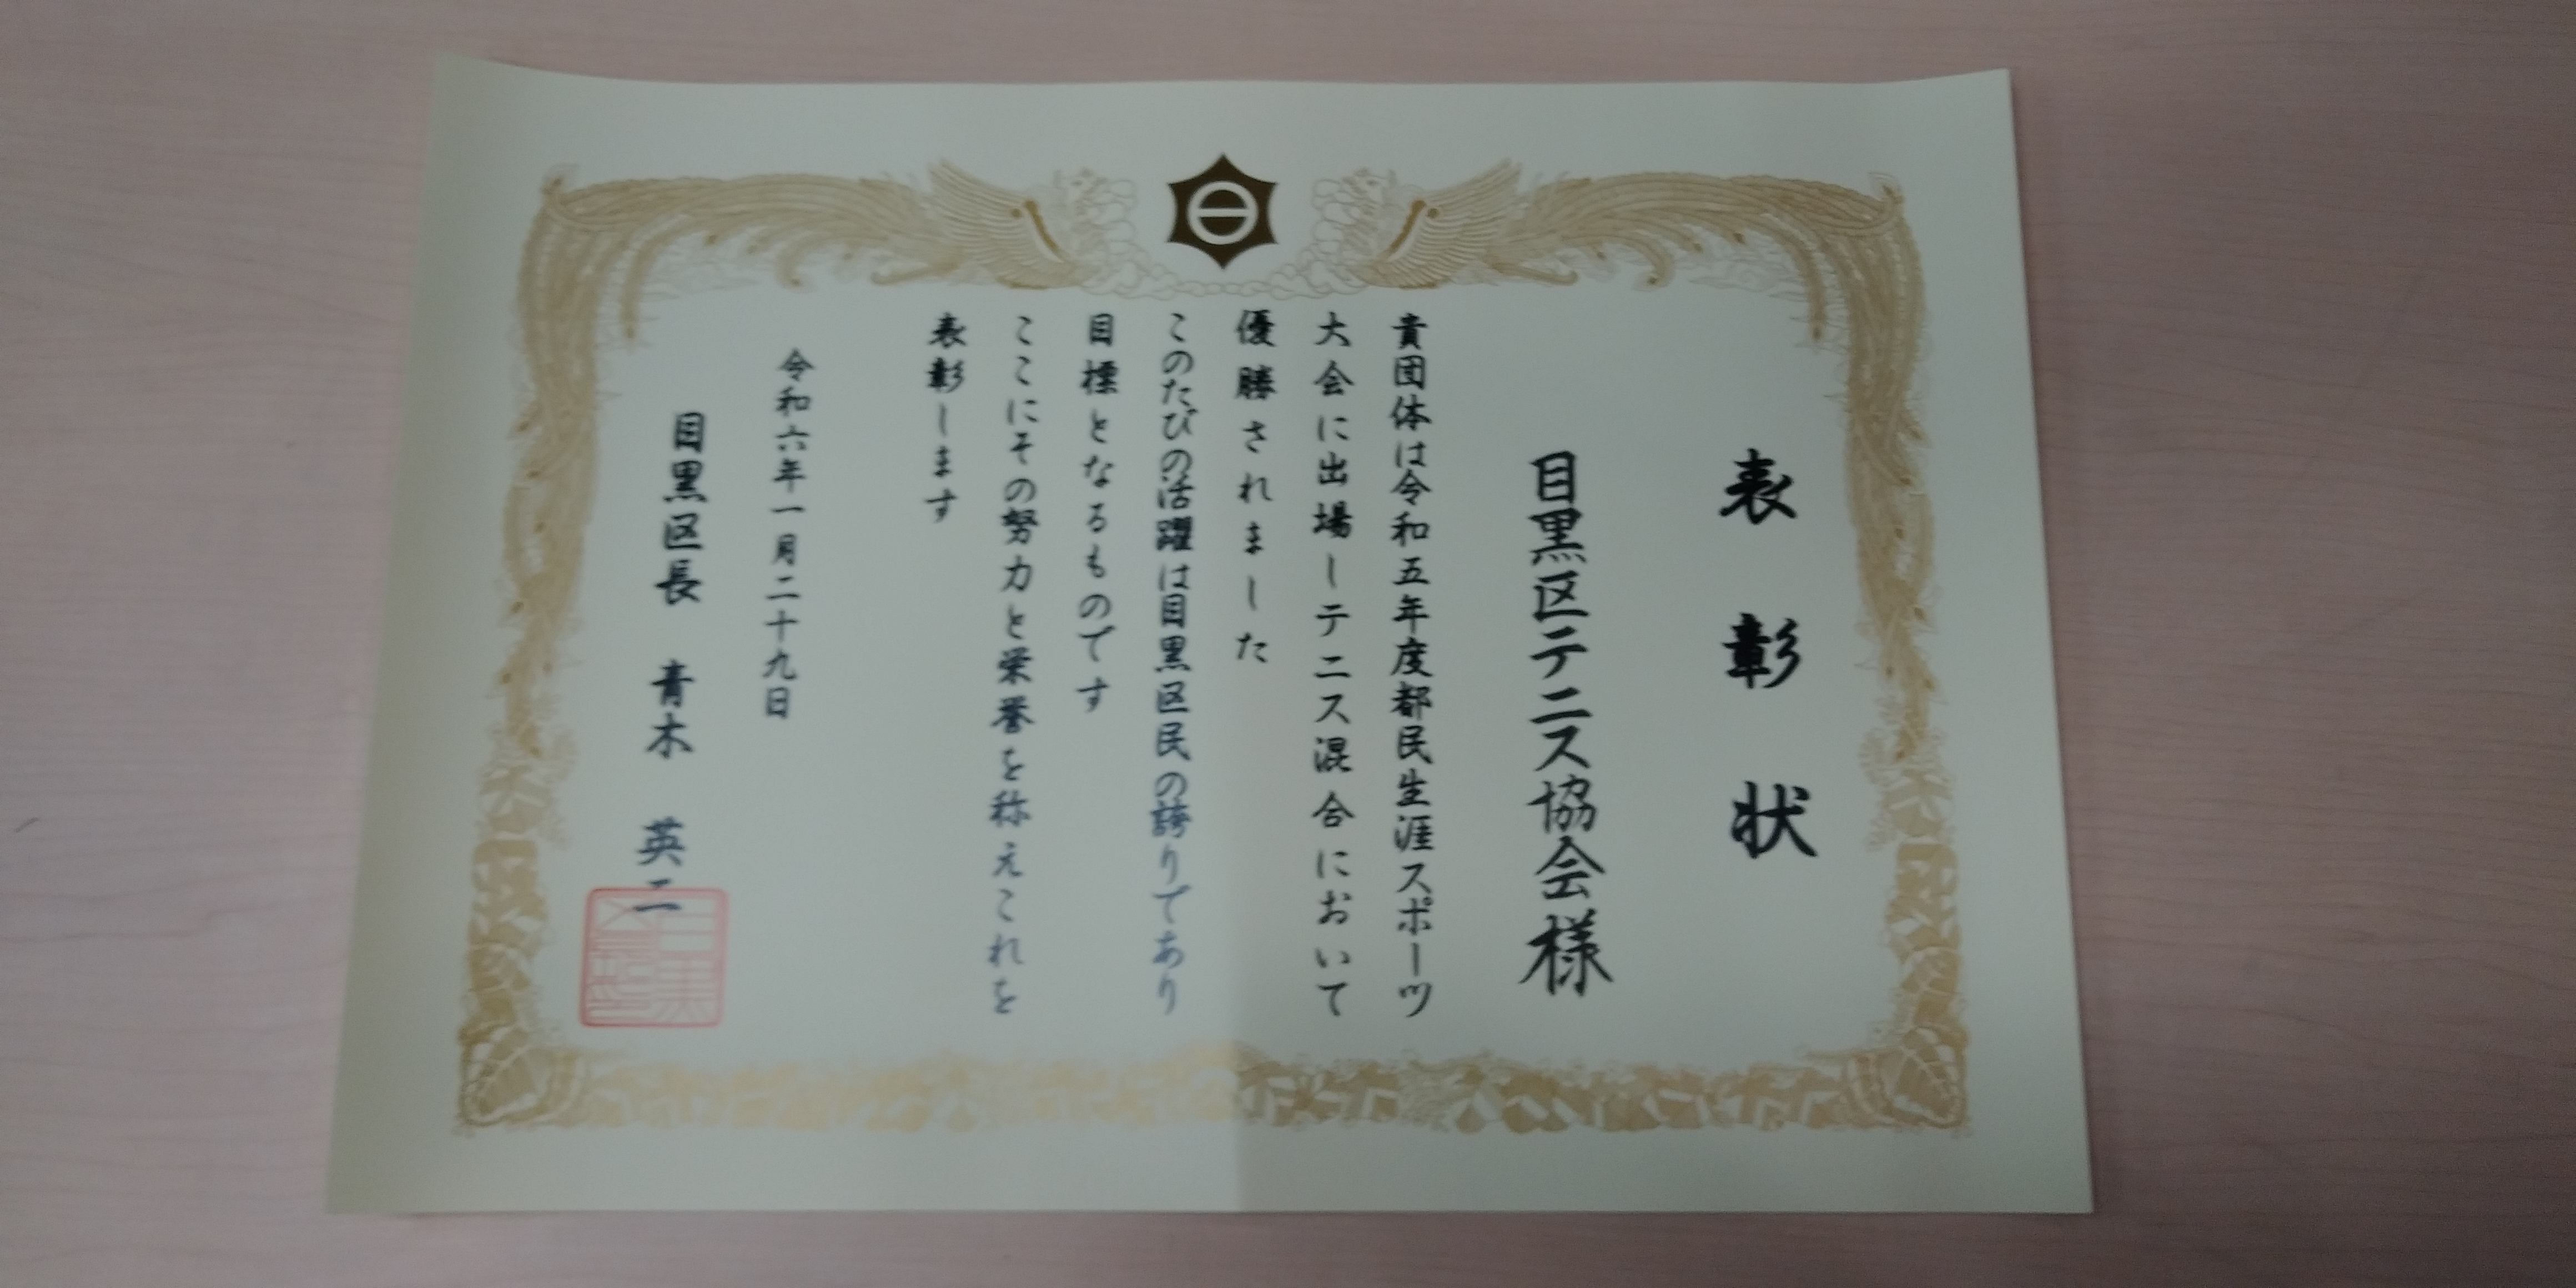 表彰状
目黒区テニス協会様
貴団体は令和五年度都民生涯スポーツ
大会に出場しテニス混合において
優勝されました
このたびの活躍は目黒区民の誇りであり
目標となるものです
ここにその努力と栄誉を称えこれを
表彰します
令和六年一月二十九日
目黒区長 青木 英二